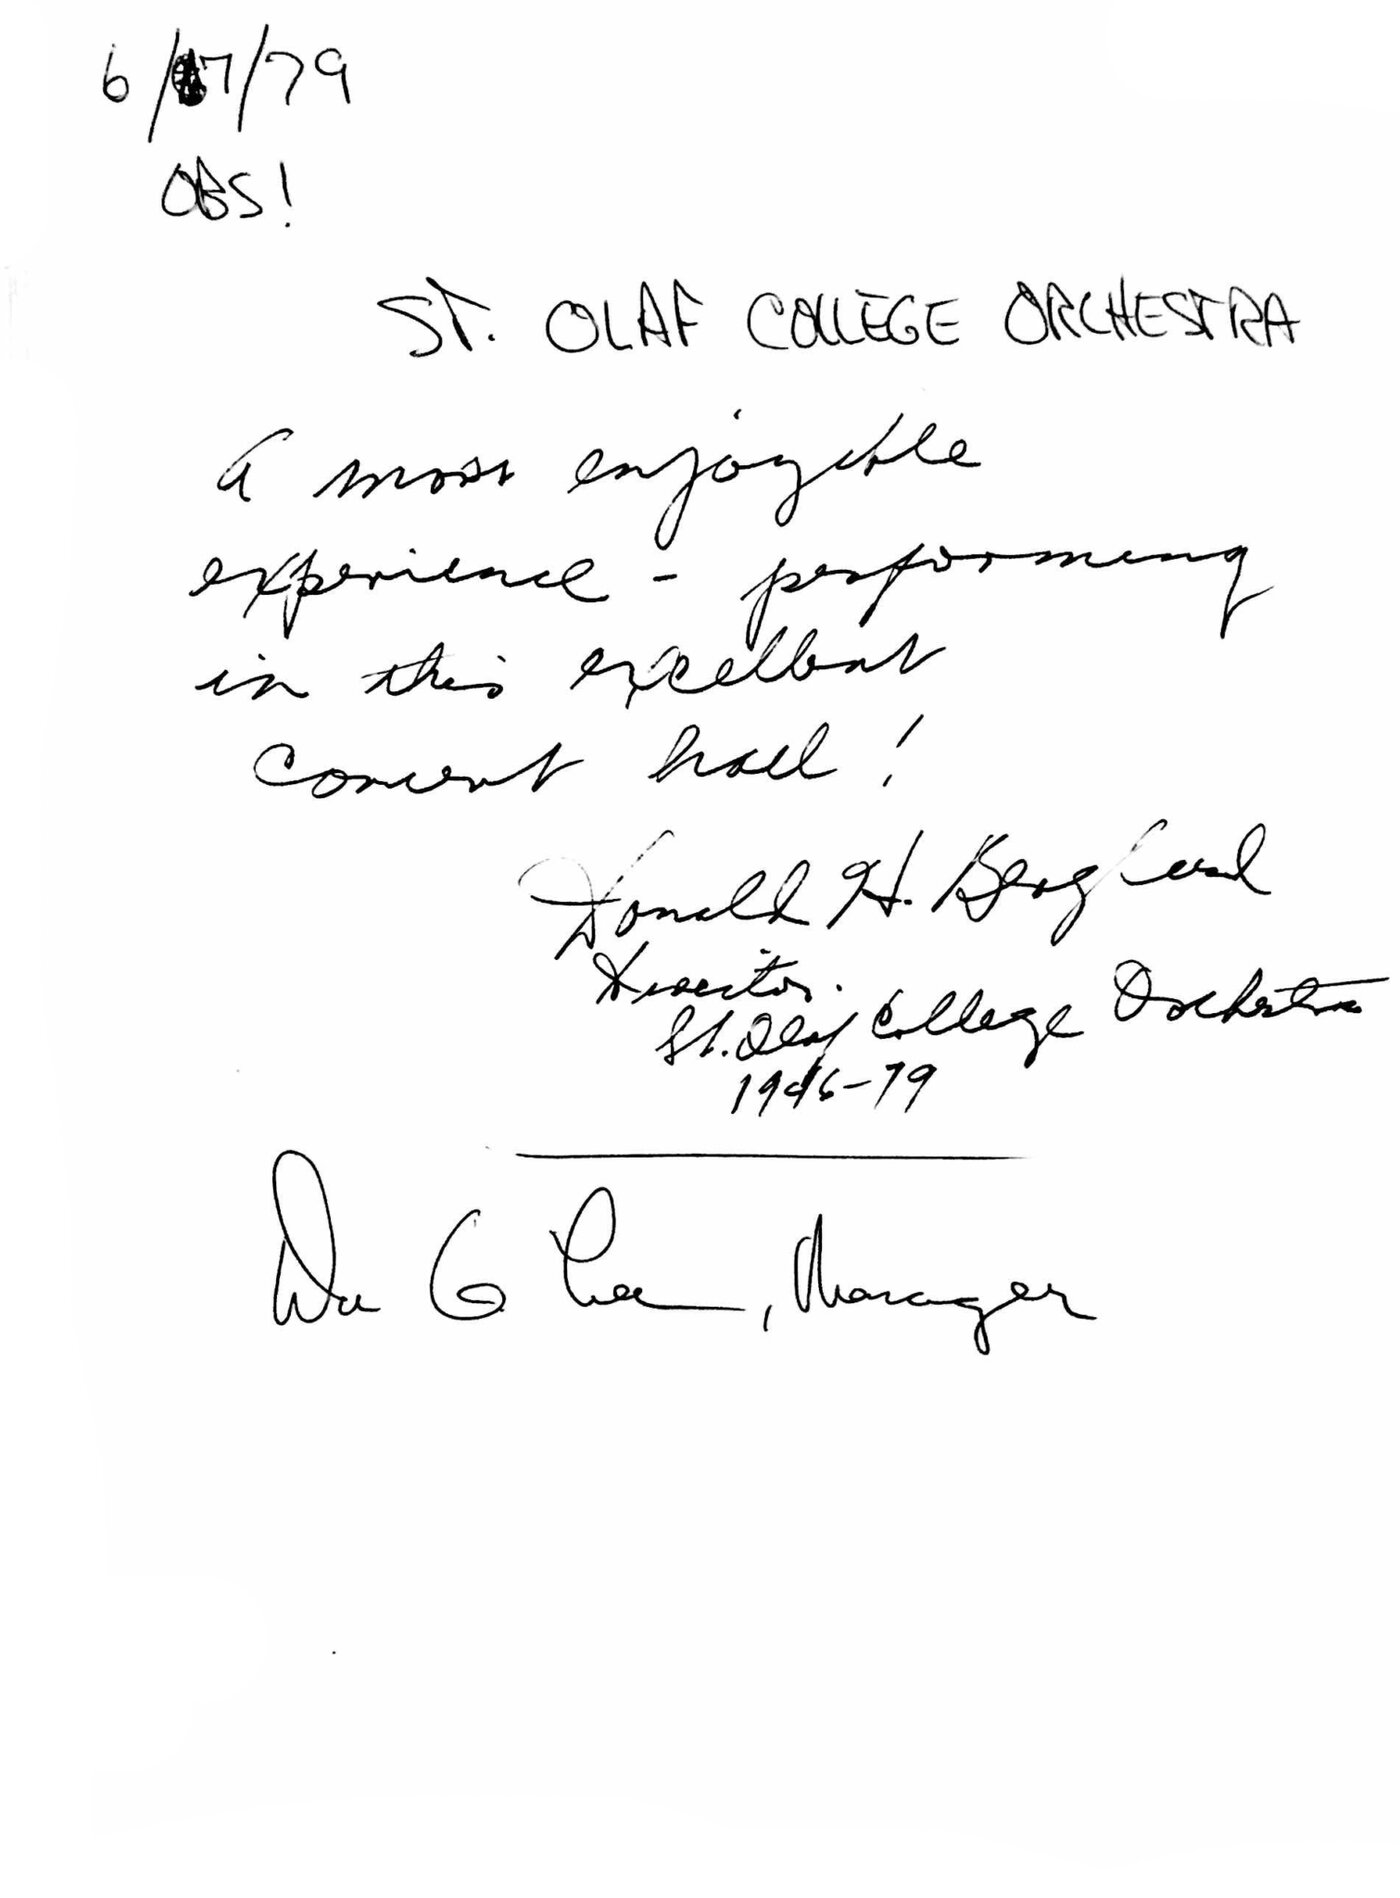 6/17/79
OBS!
ST. OLAF COLLEGE ORCHESTRA
A most enjoyable
experience - performing
in this excellent
concert hall!
Donald H. Berglund
Director.
St. Olaf College Orchestra
1946-79
G Lee, Manager